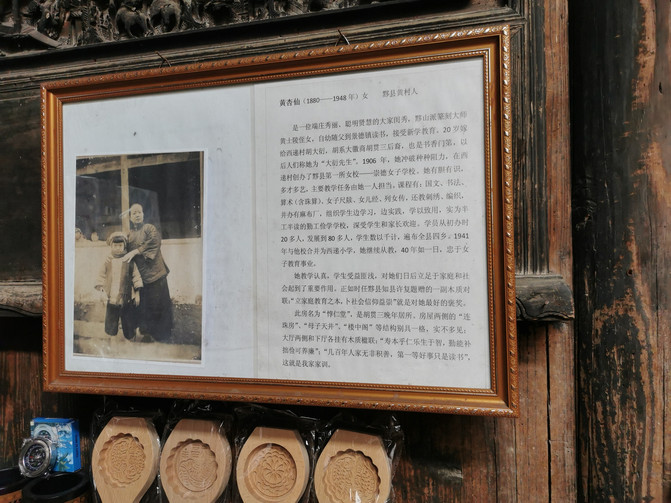 黄杏仙（1880——1948年）女　　黟县黄村人
是一位端庄秀丽、聪明贤慧的大家闺秀，黟山派篆刻大师
黄士陵侄女。自幼随父到景德镇读书，接受新学教育，20岁嫁
给西递村胡大衍，胡系大徽商胡贯三后裔，也是书香门第。以
后人们称她为“大衍先生”。1906年，她冲破种种阻力，在西
递村创办了黟县第一所女校——崇德女子学校。她有胆有识、
多才多艺，主要教学任务由她一人担当。课程有：国文、书法、
算术（含珠算）、女子尺牍、女儿经、列女传，还教刺绣、编织，
并办有麻布厂，组织学生边学习，边实践，学以致用，实为半
工半读的勤工俭学学校，深受学生和家长欢迎。学员从初办时
20多人，发展到80多人，学生数以千计，遍布全县四乡。1941
年与他校合并为西递小学，她继续从教，40年如一日，忠于女
子教育事业。
她教学认真，学生受益匪浅，对她们日后立足于家庭和社
会起到了重要作用，正如时任黟县知县许复题赠的一副木质对
联：“立家庭教育之本，卜社会信仰益崇”就是对她最好的褒奖。
此房名为“惇仁堂”，是胡贯三晚年居所，房屋两侧的“连
珠房”、“母子天井”、“楼中阁”等结构别具一格，实不多见；
大厅两侧和下厅各挂有木质楹联：“寿本乎仁乐生于智，勤能补
拙俭可养廉”；“几百年人家无非积善，第一等好事只是读书”，
这就是我家家训。